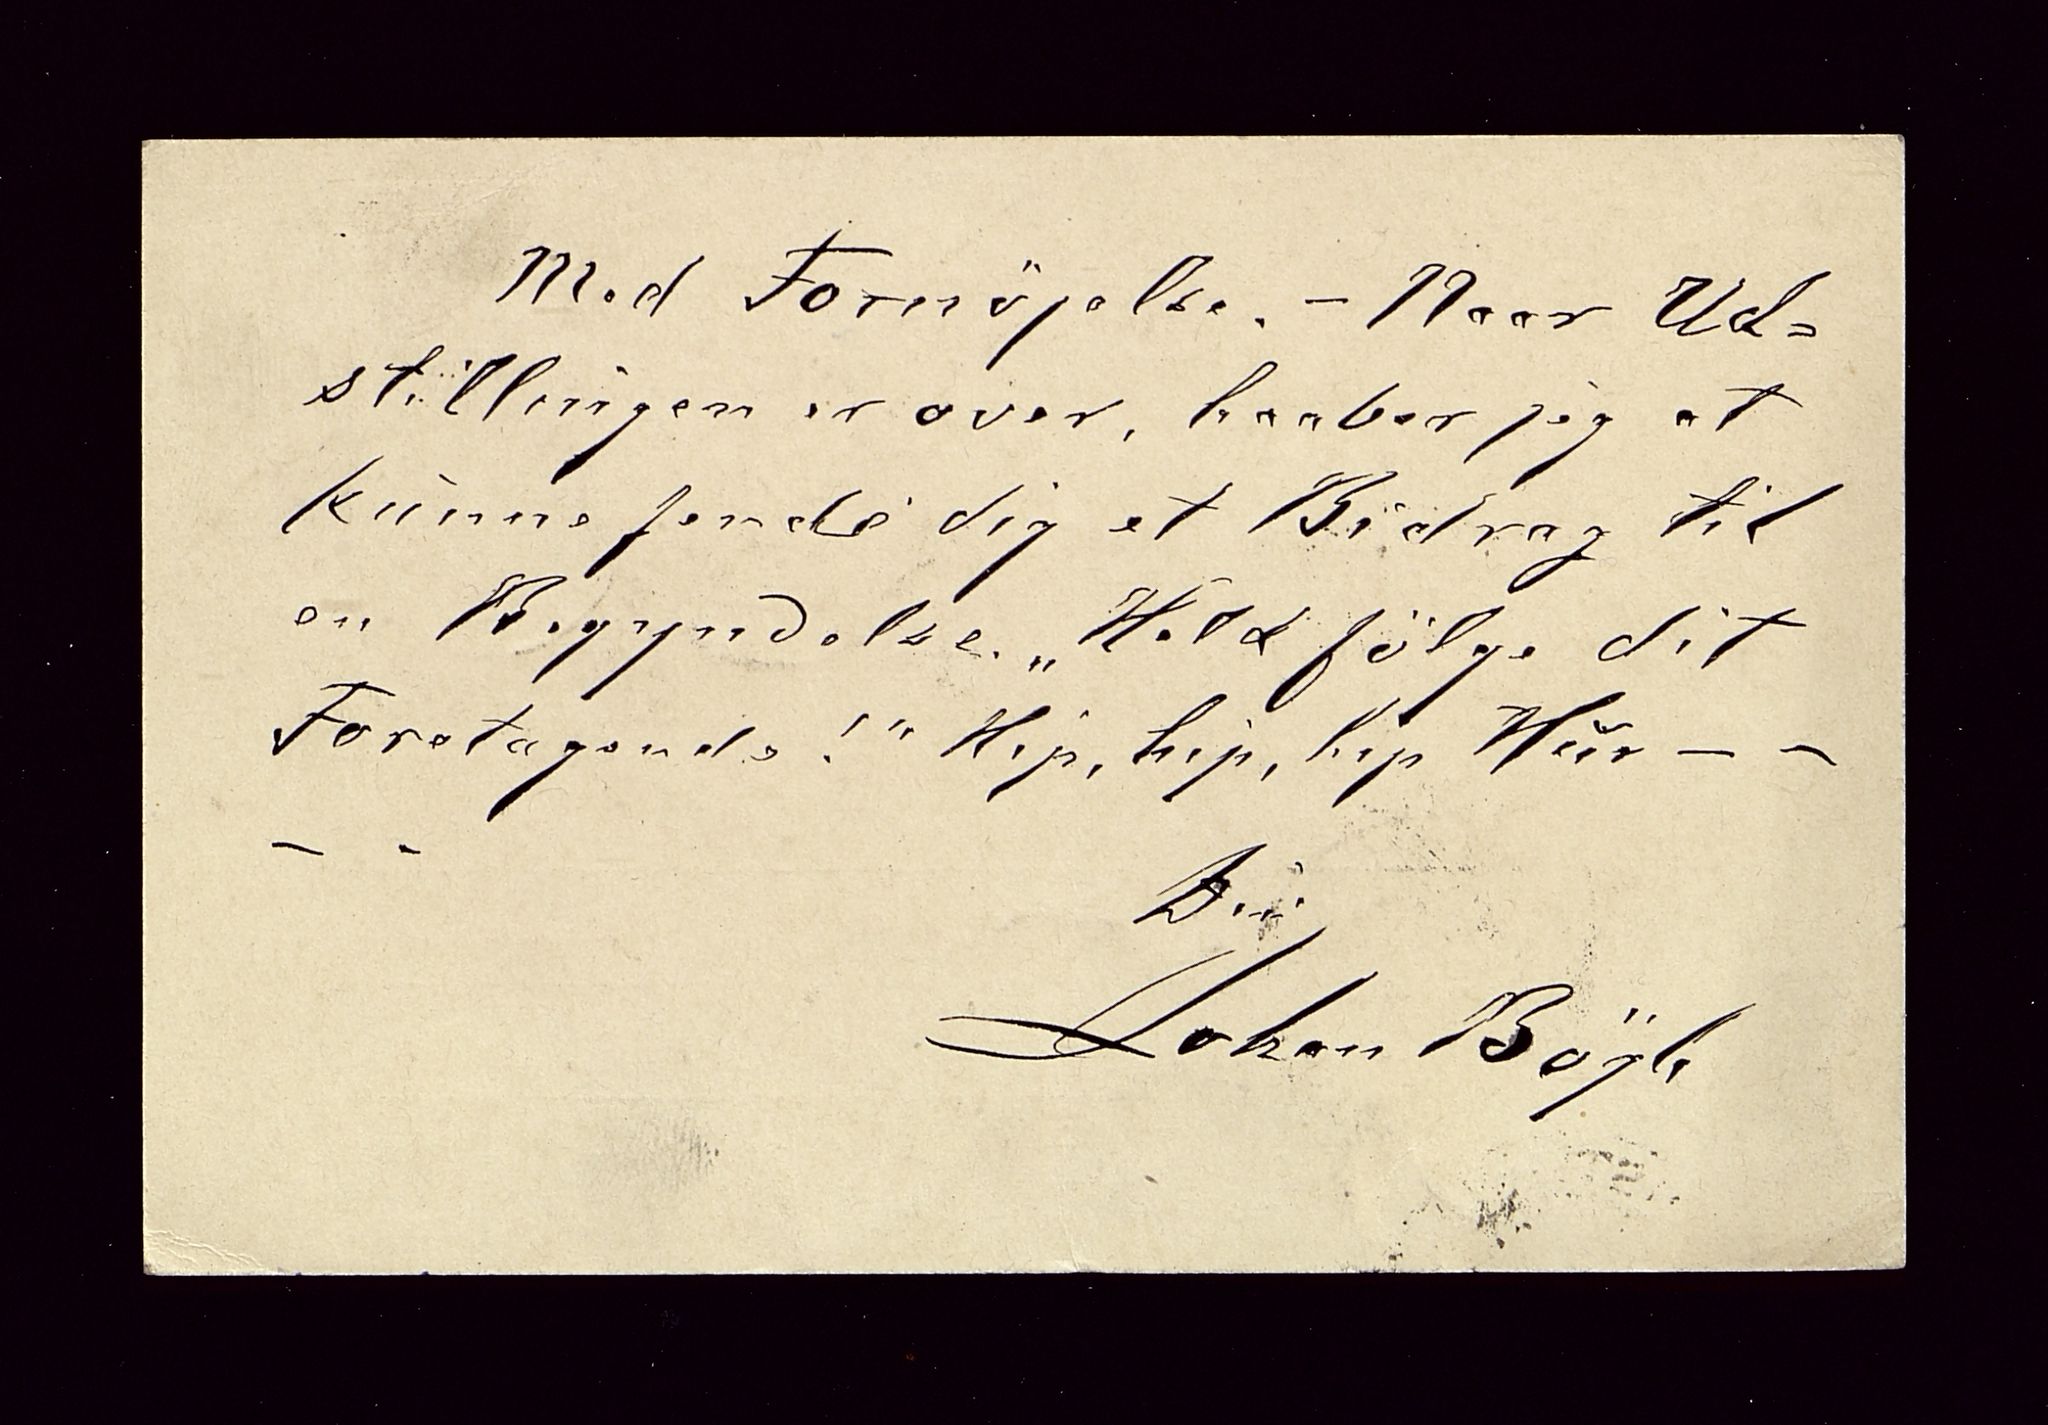 Med Fornöjelse. – Naar Ud=
stillingen er over, haaber jeg at
kunne sende dig et Bidrag til
en Begyndelse. „Held følge dit
Foretagende!" Hip, hip, hip Hur – –
– -
Din
Johan Bögh